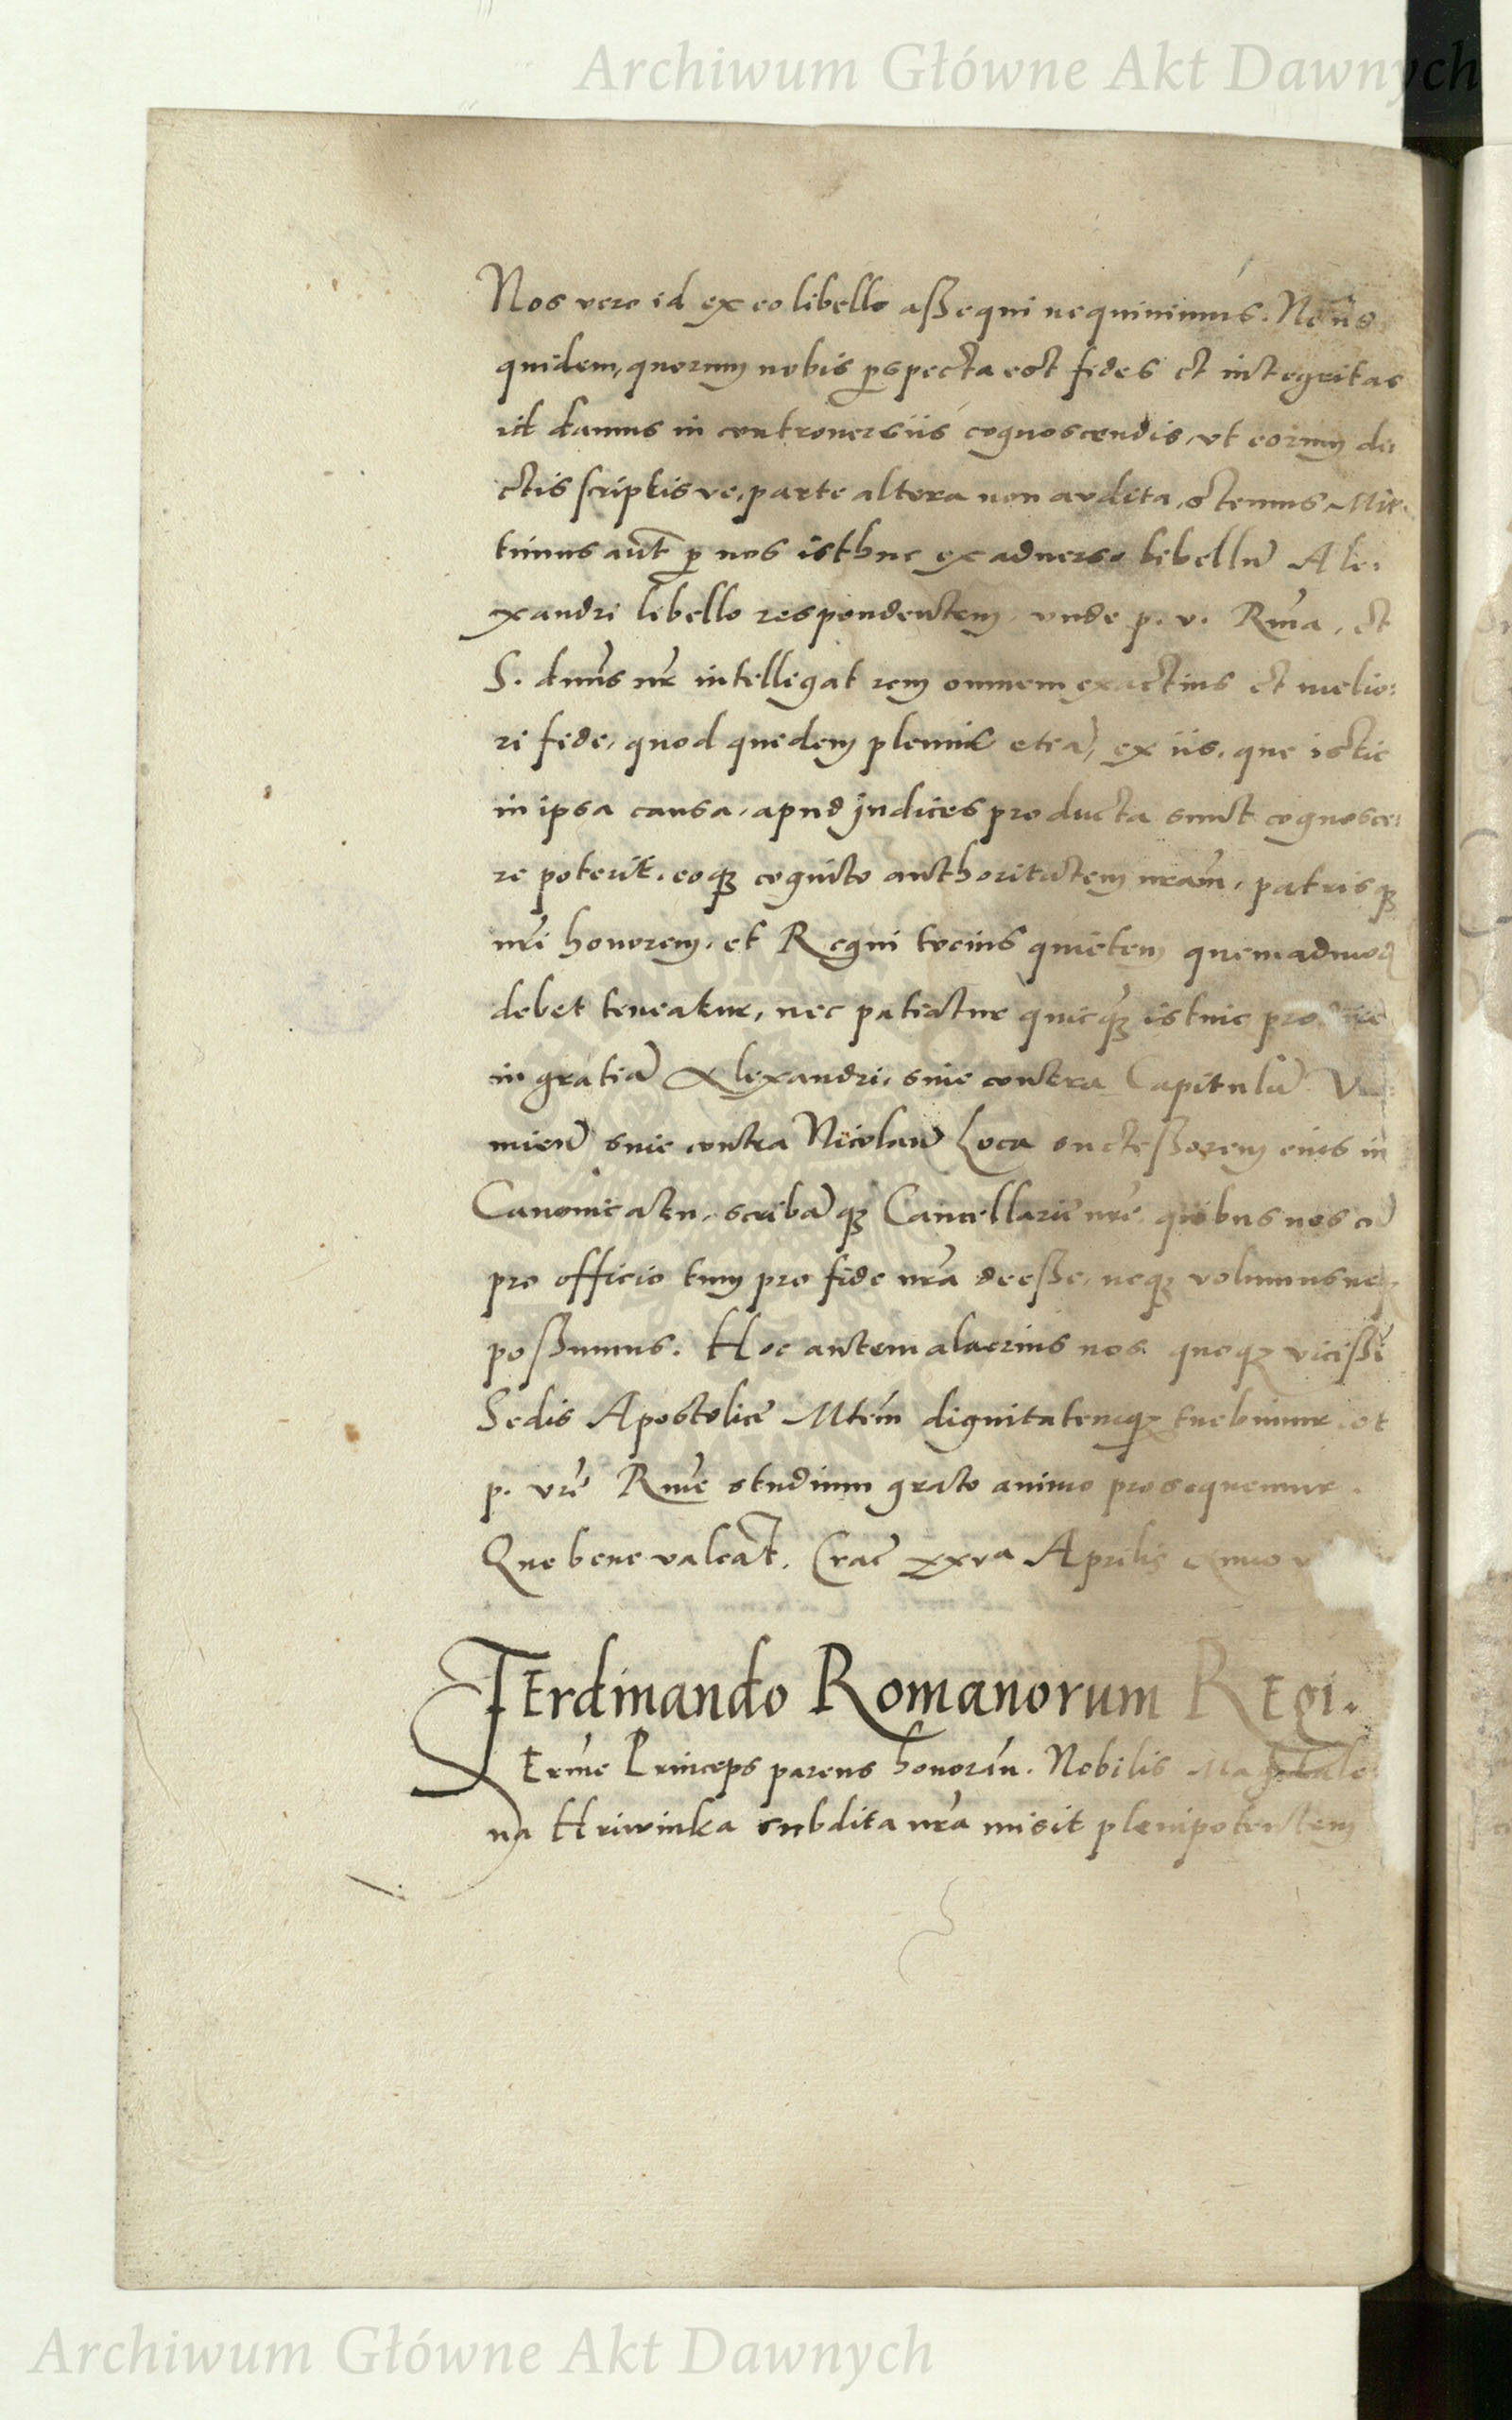 Archiwum Główne Akt Dawnych
Nos vero id ex eo libello aßequi nequiuimus. Ne ijs
quidem, quorum nobis pspecta est fides et integritas
id damus in controuersiis cognoscendis, vt eorum di:
ctis scriptis ve, parte altera non audita, stemus. Mit:
timus aut p nos isthuc ex aduerso libellu Ale:
xandri libello respondentem, vnde p. v. Rma, et
S. dnus nr intelligat rem omnem exactius et melio:
ri fide, quod quidem plenius etia, ex iis, que istic
in ipsa causa, apud judices producta sunt cognosce:
re poterit, eoq cognito authoritatem nram, patrisq
nri honorem, et Regni tocius quietem quemadmod
debet tueatur, nec patiatur quicq istuic
in gratia Alexandri, siue contra Capitulu
mien siue contra Nicolau Loca succeßorem eius in
Canonicatu, scribaq Cancellarie nre, quibus nos cu
pro officio tum pro fide nra deeße, neq volumus neq
poßumus. Hoc autem alacrius nos quoq vicißi
Sedis Apostolice Mtem dignitatemq tuebimur et
p. vre Rme studium grato animo prosequemur.
Que bene valeat. Crac xxva Aprilis Anno
FErdinando Romanorum REgi.
SErme Princeps parens honoran. Nobilis Magdale
na Hriwinka subdita nra misit plenipotentem
Archiwum Główne Akt Dawnych